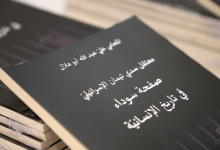 القاضي علي عبد الله أبو هلال
معتقل سدي تيمان الإسرائيلي
صفحة سوداء
في تاريخ الإنسانية